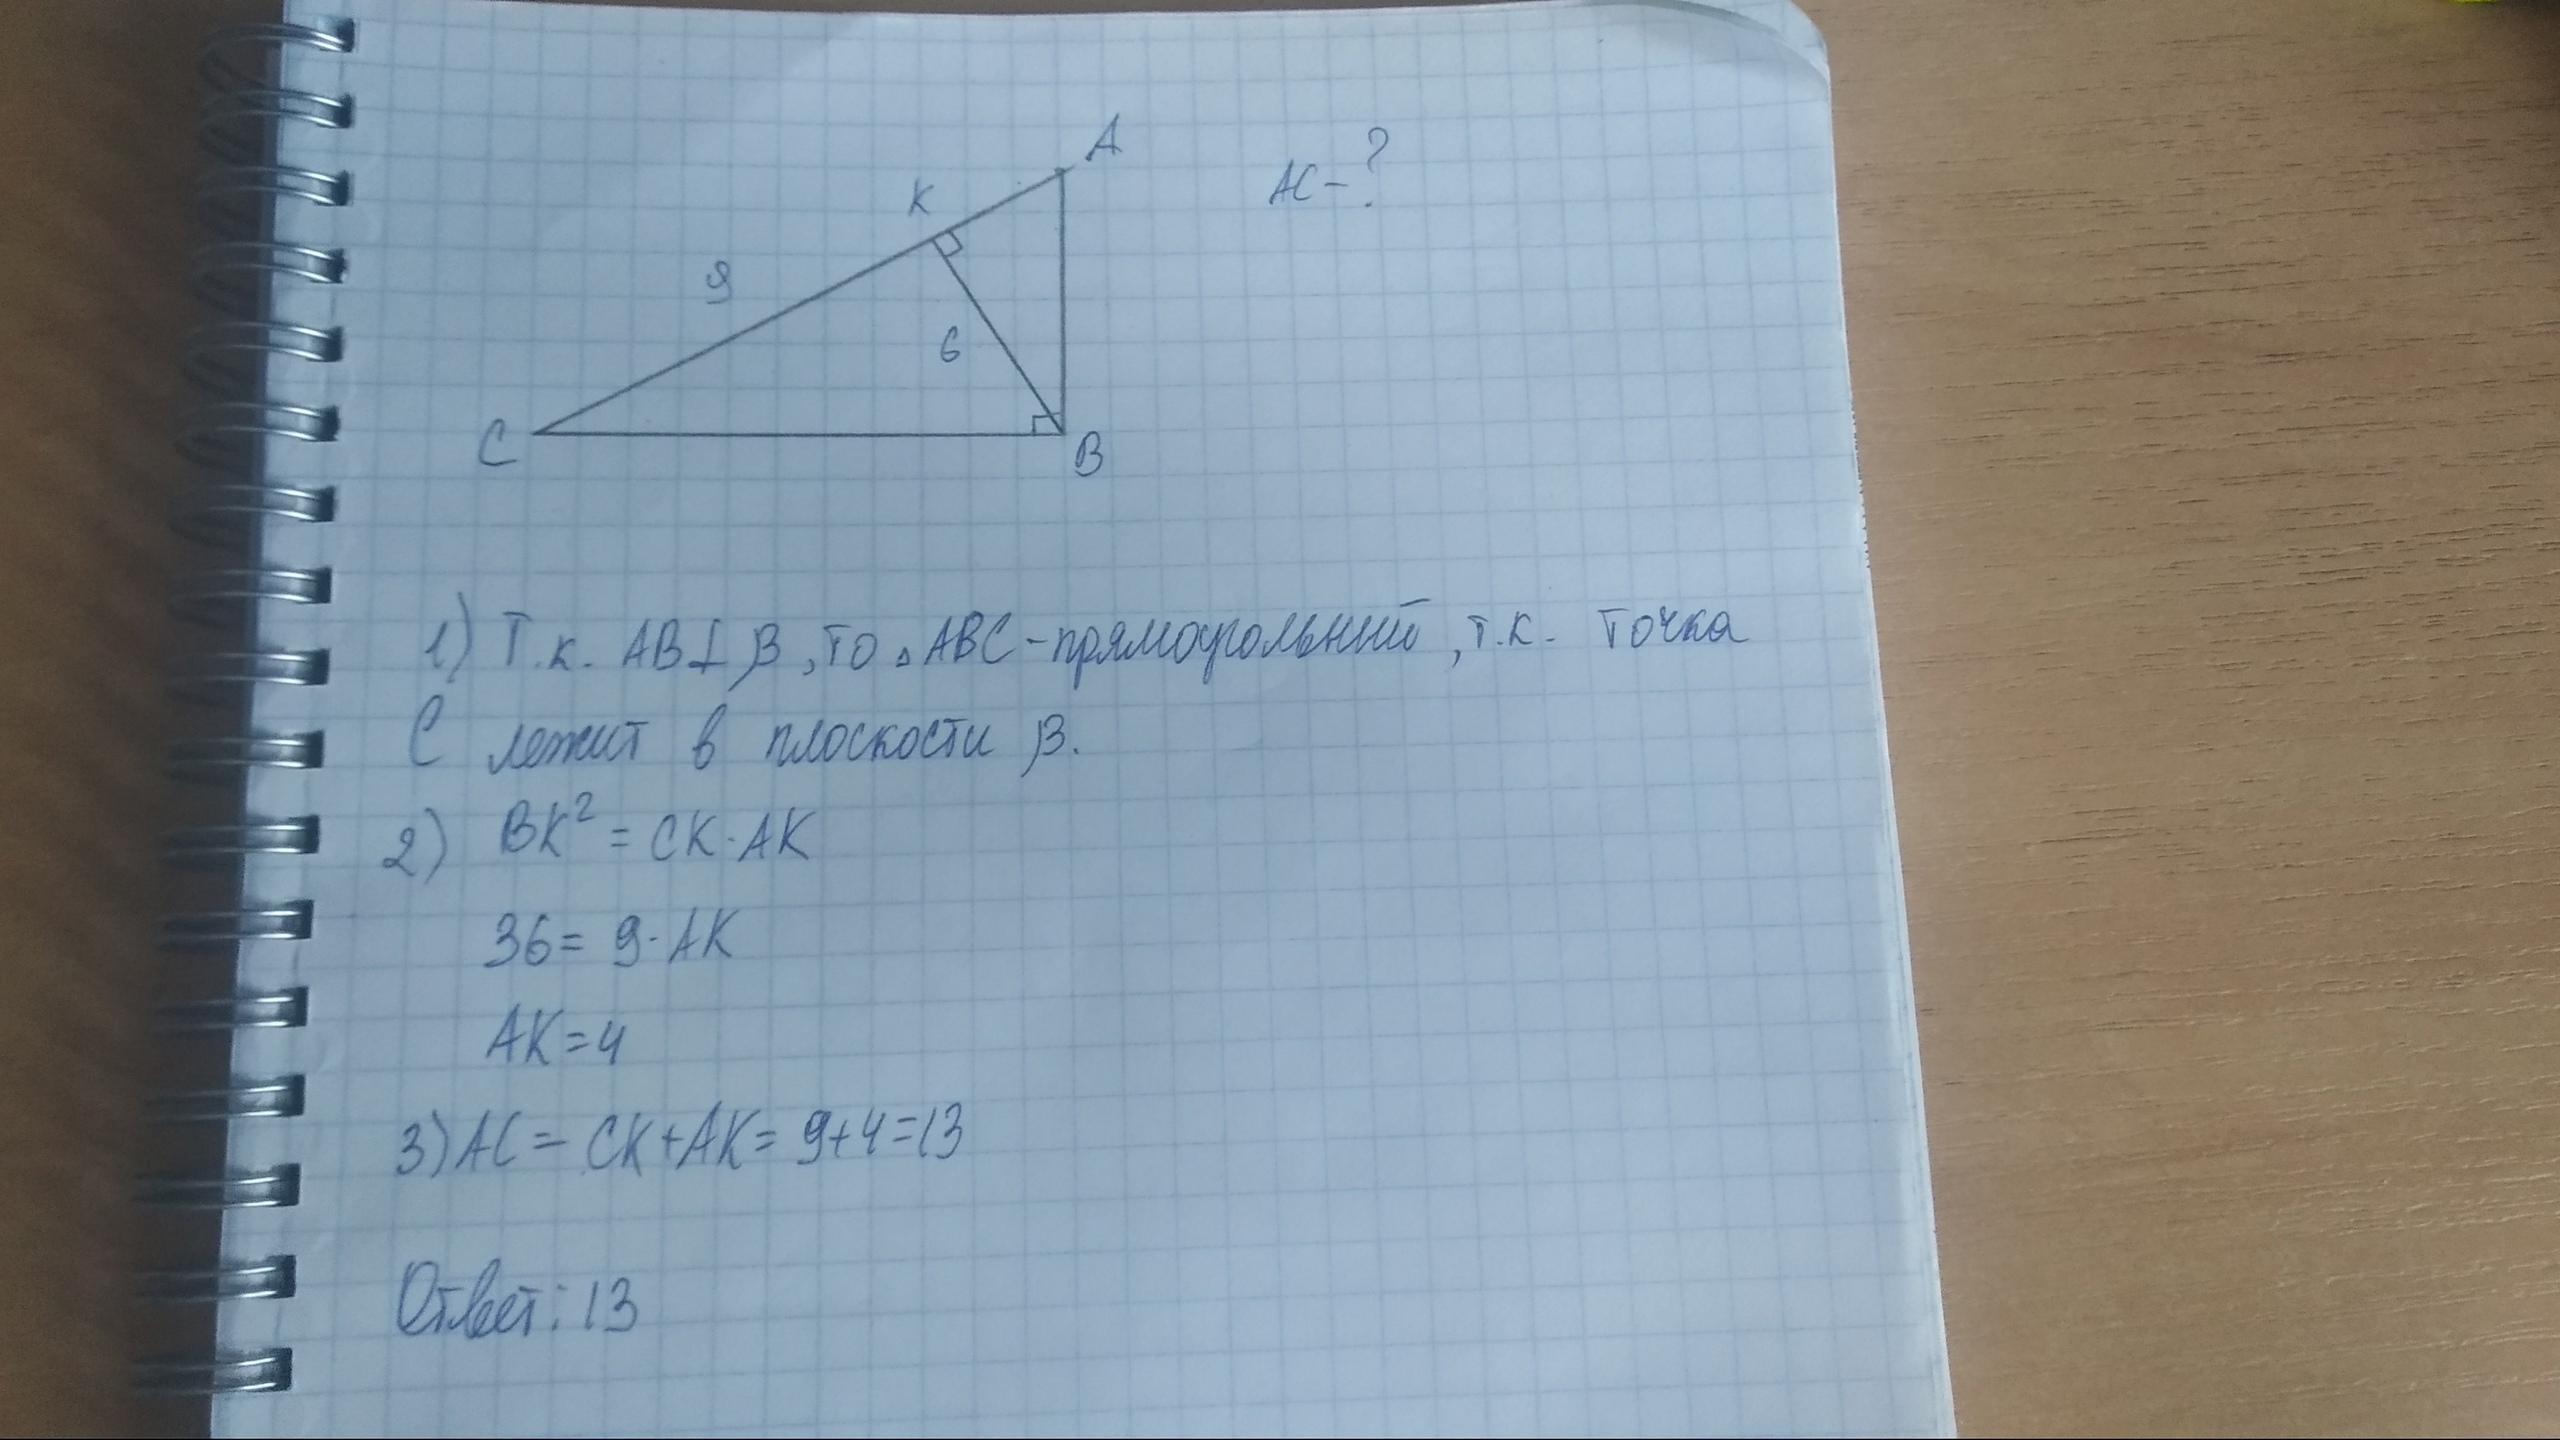 A
K
AC-?
9
6
C
B
1) Т.к. AB⊥β, то ▵ABC-прямоугольный, т.к. точка
C лежит в плоскости β.
2) BK² = CK·AK
36= 9·AK
AK=4
3) AC = CK+AK= 9+4=13
Ответ: 13